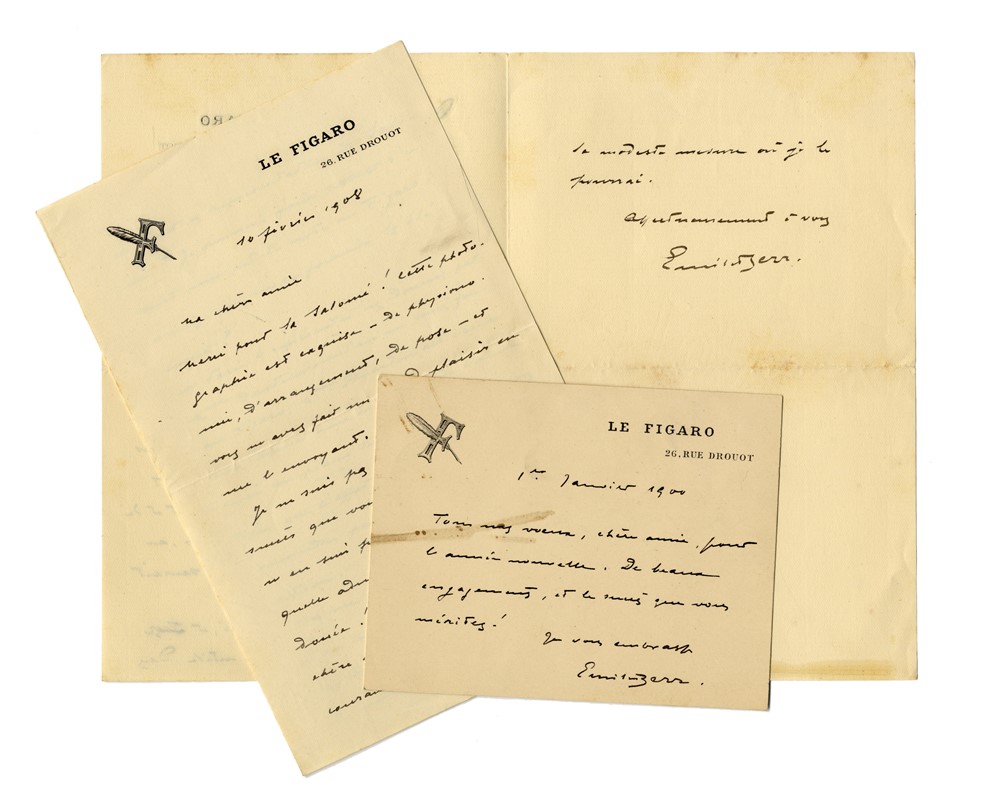 LE FIGARO
26. RUE DROUOT
10 février 1908
Ma chère amie
Merci pour la Salomé! Cette photo-
graphie est exquise – de physiono-
mie, d'arrangement, de pose – et
vous m'avez fait un
plaisir en
me l'envoyant.
Je ne suis pas
succès que vous
n'en suis
quelle
douée!
chère
la modeste mesure où je le
pourrai.
Affectueusement à vous
LE FIGARO
26. RUE DROUOT
1er Janvier 1900
Tous nos voeux, chère amie, pour
l'année nouvelle. De beaux
engagements, et le succès que vous
méritez!
Je vous embrasse